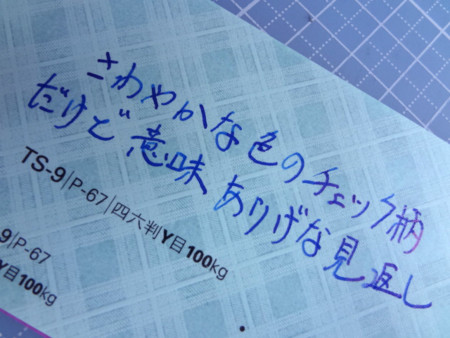 さわやかな色のチェック柄
だけど意味ありげな見返し
TS-9|P-67|四六判Y目100kg
9|P-67
Y目100kg